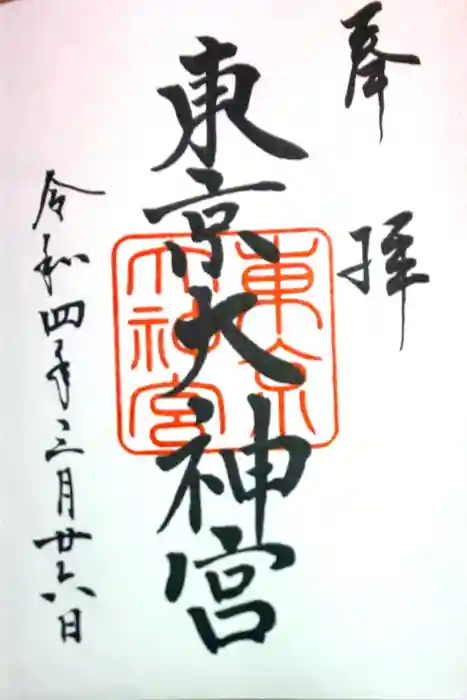 奉拝
東京大神宮
東京大神宮
令和四年三月廿六日